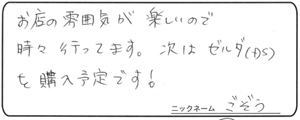 お店の雰囲気が 楽しいので
時々 行ってます。次は ゼルダ(DS)
を 購入予定です!
ニックネーム ごぞう